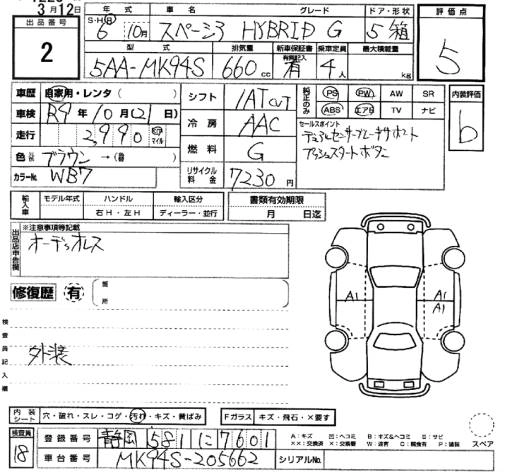 3月12日
出品番号
2
年式
S・H・R
6年10月
車名
スペーシア HYBRID G
グレード
ドア・形状
5 箱
評価点
5
型式
5AA-MK94S
排気量
660cc
新車保証書
有
乗車定員
4人
最大積載量
kg
車歴 自家用・レンタ( )
車検 R9年10月(21日)
走行 2,990 km マイル
色 ブラウン→(替)
カラーNo. WB7
シフト IAT CVT
冷房 AAC
燃料 G
リサイクル料金 7230円
純正のみ
PS PW AW SR
ABS エアB TV ナビ
セールスポイント
デュアルセンサーブレーキサポート
プッシュスタートボタン
内装評価
b
輸入車 モデル年式 ハンドル 輸入区分
年 右H・左H ディーラー・並行
書類有効期限
月 日迄
出品店申告欄
※注意事項等記載
オーディオレス
修復歴 有
箇所
検査員記入欄
外装
A1
A1
A1
内装シート 穴・破れ・スレ・コゲ・汚れ・キズ・黄ばみ
Fガラス キズ・飛石・×要す
スペア
検査員
18
登録番号 静岡 581 に 7601
車台番号 MK94S-205662
シリアルNo.
A:キズ U:ヘコミ B:キズ&ヘコミ S:サビ
XX:交換済 X:要交換 W:波有 C:腐食有 P:塗装